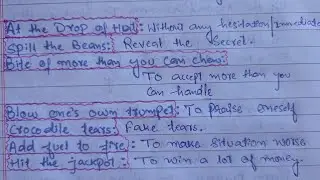 At the Drop of Hat: Without any hesitation/immediate
Spill the Beans: Reveal the Secret.
Bite of more than you Can chew:
To accept more than you
Can handle
Blow one's own trumpet: To Praise oneself
Crocodile tears: Fake tears.
Add fuel to fire: To make situation worse
Hit the jackpot: To win a lot of money.